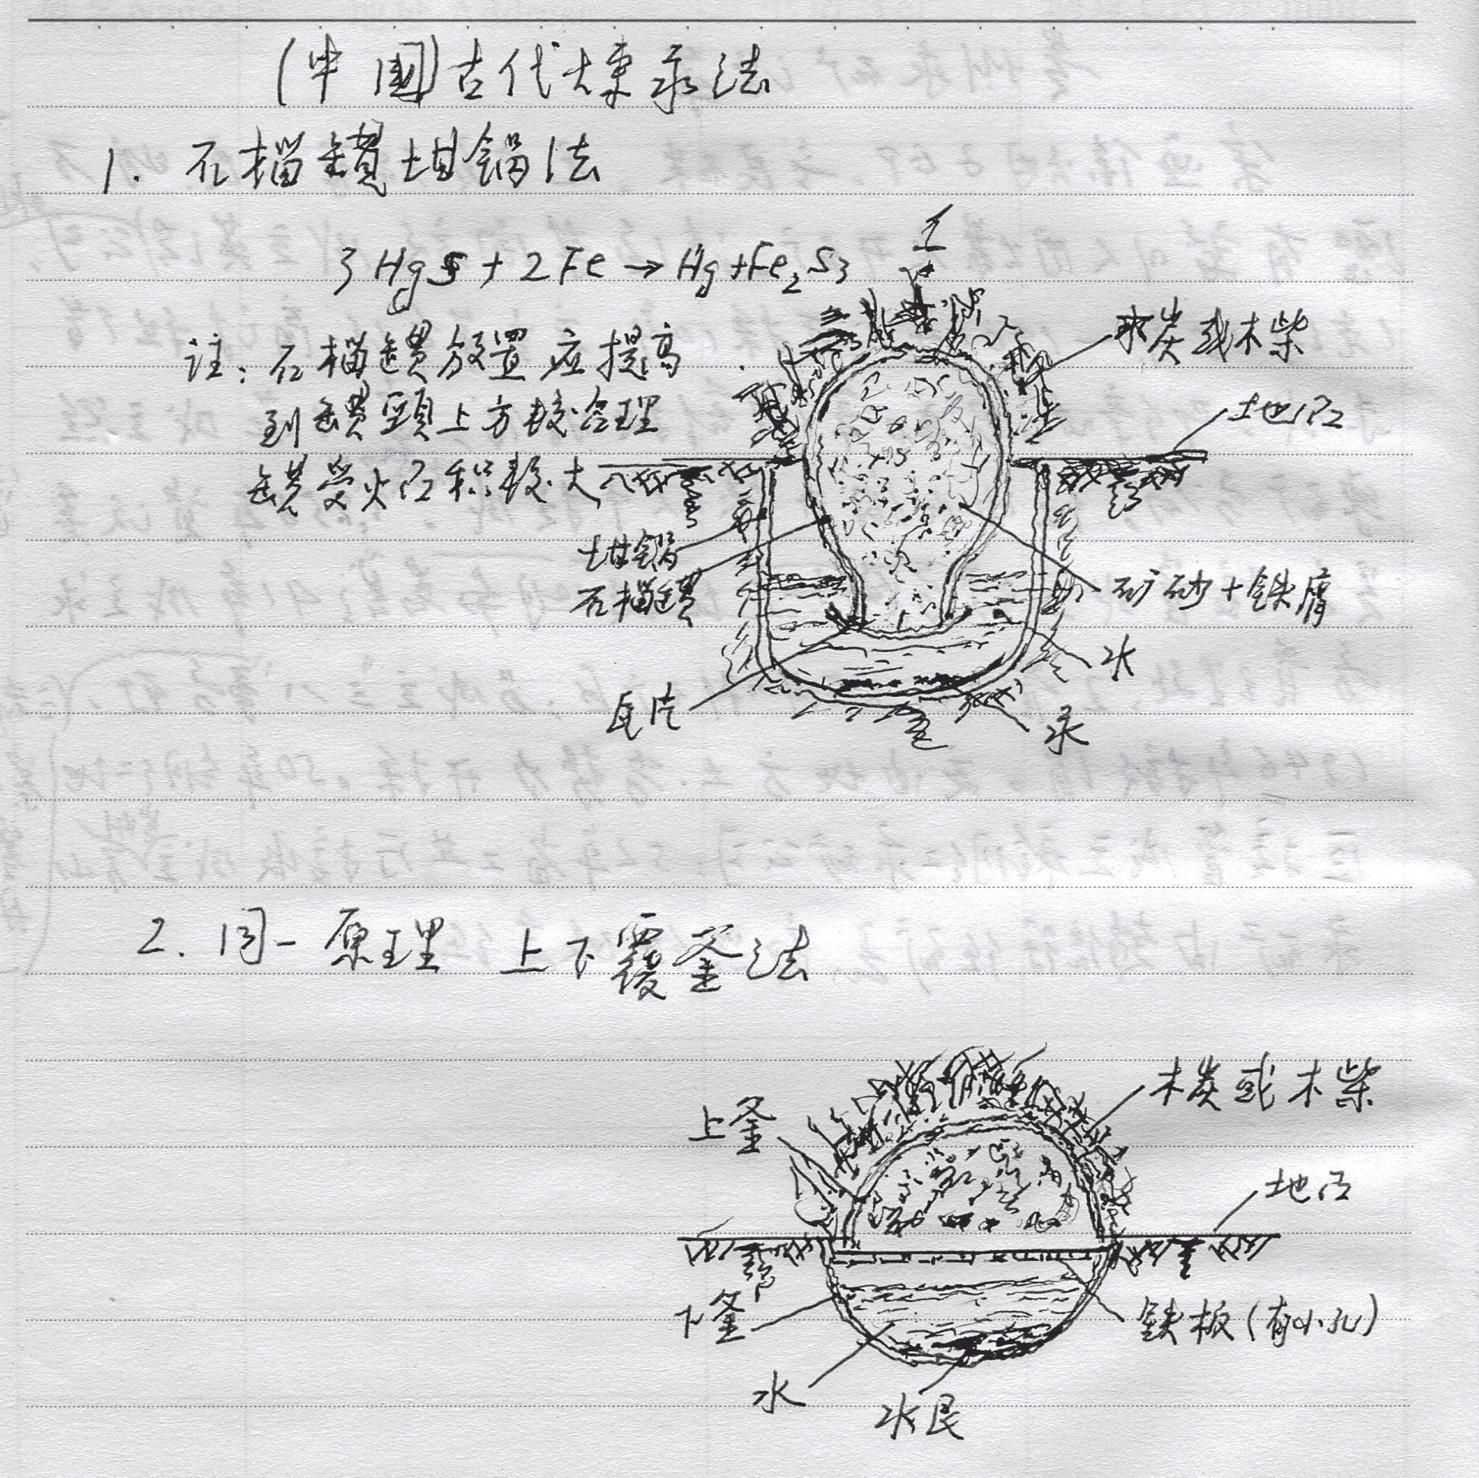 (中國)古代煉汞法
1. 石榴罐坩鍋法
3HgS + 2Fe → Hg + Fe₂S₃
1
註：石榴罐放置应提高
到罐頸上方較合理
罐受火面積較大
木炭或木柴
地面
坩鍋
石榴罐
矿砂+铁屑
水
瓦片
汞
2. 同一原理 上下覆釜法
木炭或木柴
上釜
地面
下釜
鉄板(有小孔)
水
水艮